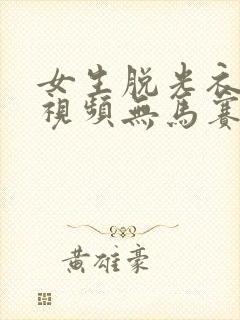 女生脱光衣
視頻無馬賽
黃雄豪